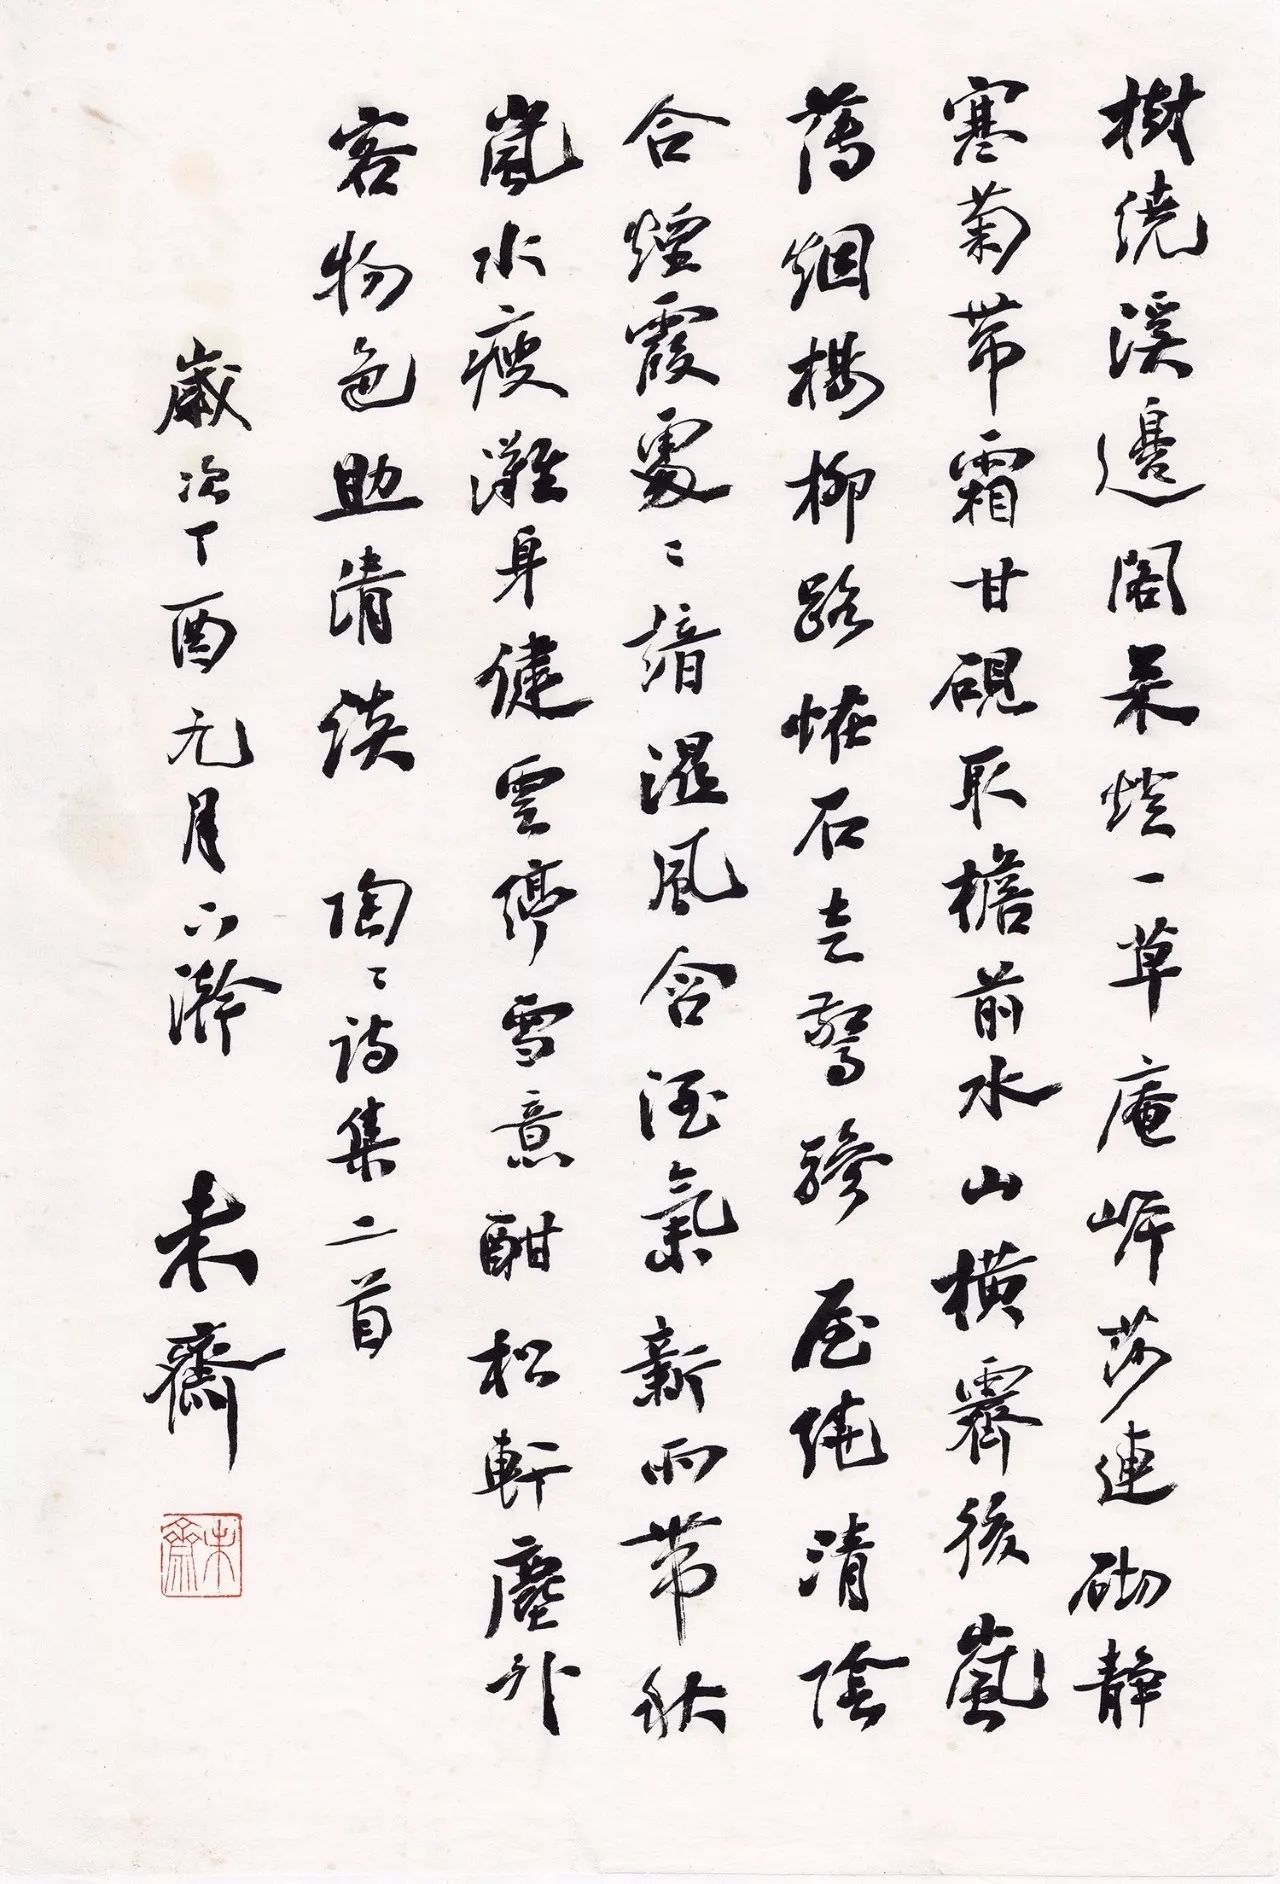 樹繞溪邊閣燈一草庵岸莎連砌靜
寒菊帶霜甘硯取檐前水山橫霽後嵐
薄烟楊柳路恠石走驚驂屋繞清陰
合煙霞處〻諳濕風含酒氣新雨帶秋
嵐水瘦灘身健雲停雪意酣松軒塵外
客物色助清談 陶〻詩集二首
歲次丁酉元月下澣 未齋
未齋